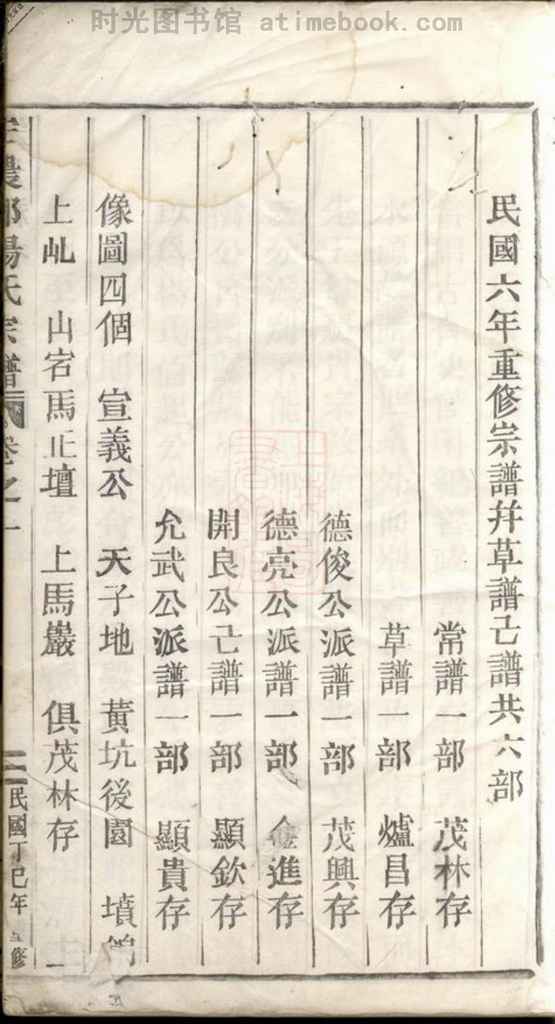 时光图书馆 atimebook.com
民國六年重修宗譜并草譜亡譜共六部
常譜一部 茂林存
草譜一部 爐昌存
德俊公派譜一部 茂興存
德亮公派譜一部 金進存
開良公亡譜一部 顯欽存
允武公派譜一部 顯貴存
像圖四個 宣義公 天子地 黃坑後園 墳
上虬 山宕馬正壇 上馬巖 俱茂林存
農郡楊氏宗譜 卷之一 一 民國丁巳年 修